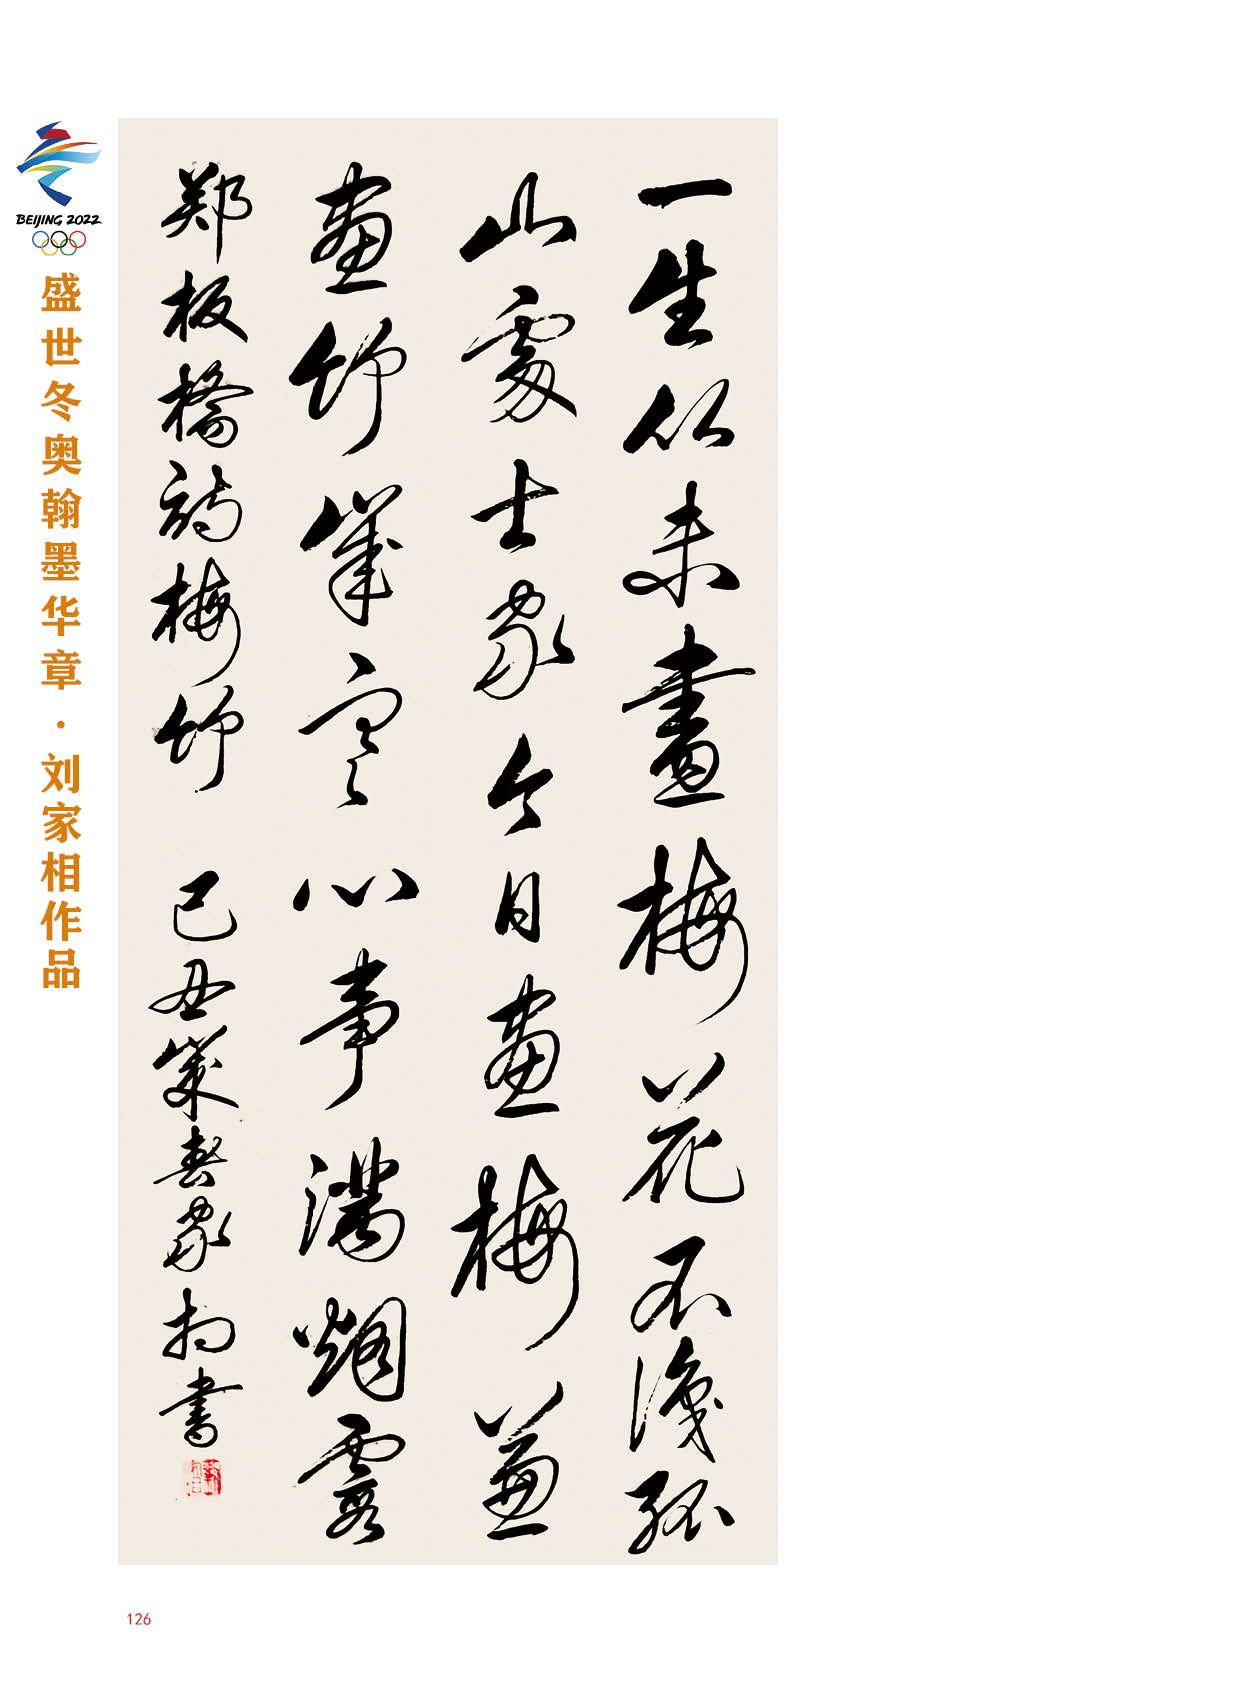 BEIJING 2022
盛世冬奥翰墨华章·刘家相作品
一生从未畫梅花不識孤
山處士家今日畫梅兼
畫竹歲寒心事滿烟霞
郑板橋詩梅竹 己丑歲春家相書
126